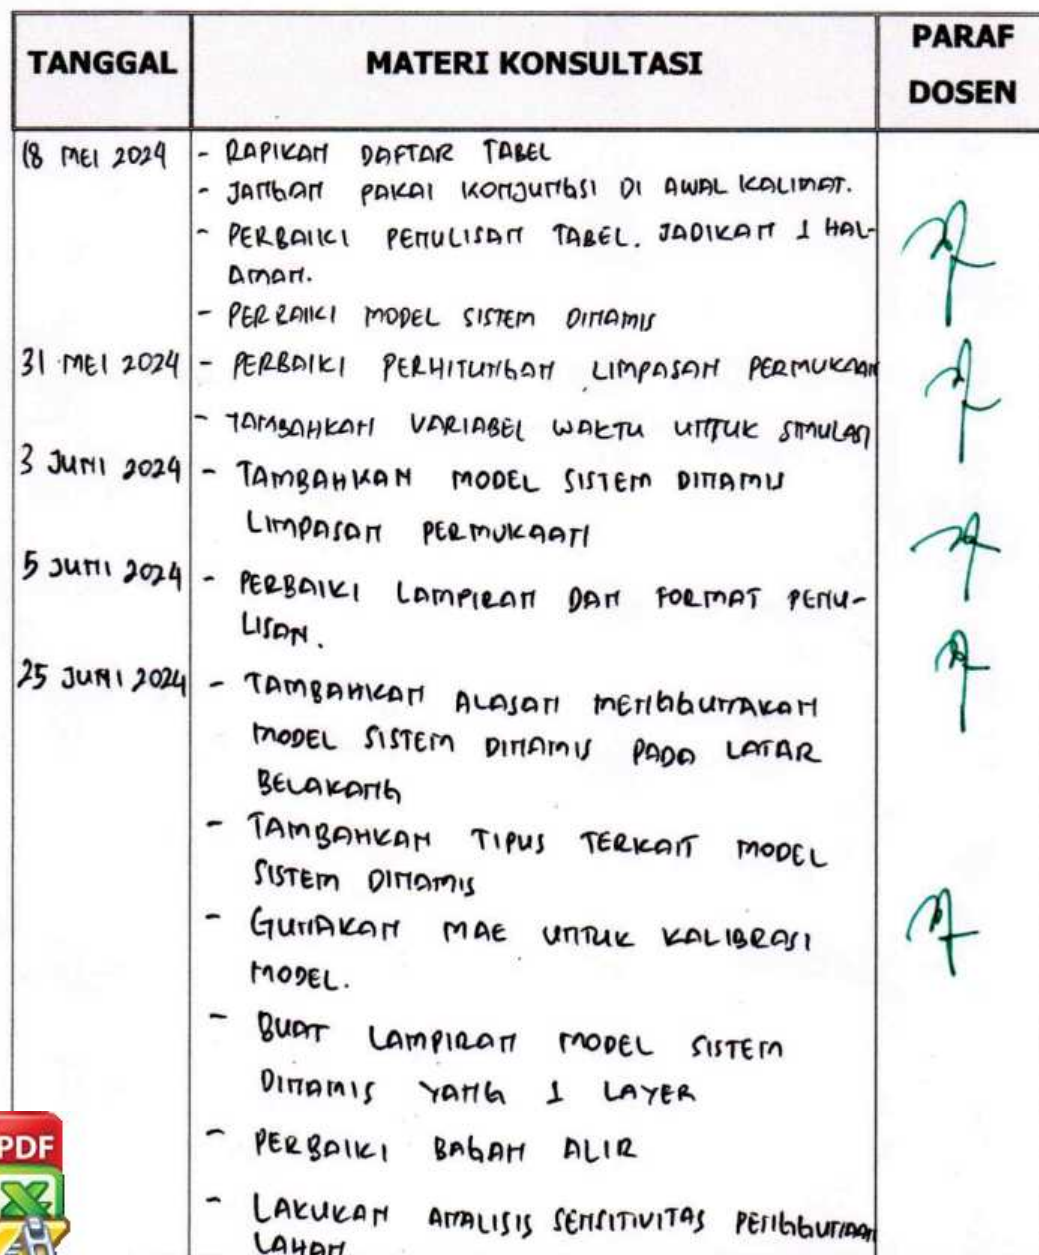 TANGGAL MATERI KONSULTASI PARAF DOSEN
18 MEI 2024 - RAPIKAN DAFTAR TABEL
- JANGAN PAKAI KONJUNGSI DI AWAL KALIMAT.
- PERBAIKI PENULISAN TABEL. JADIKAN 1 HAL-
AMAN.
- PERBAIKI MODEL SISTEM DINAMIS
31 MEI 2024 - PERBAIKI PERHITUNGAN LIMPASAN PERMUKAAN
- TAMBAHKAN VARIABEL WAKTU UNTUK SIMULASI
3 JUNI 2024 - TAMBAHKAN MODEL SISTEM DINAMIS
LIMPASAN PERMUKAAN
5 JUNI 2024 - PERBAIKI LAMPIRAN DAN FORMAT PENU-
LISAN.
25 JUNI 2024 - TAMBAHKAN ALASAN MENGGUNAKAN
MODEL SISTEM DINAMIS PADA LATAR
BELAKANG
- TAMBAHKAN TIPUS TERKAIT MODEL
SISTEM DINAMIS
- GUNAKAN MAE UNTUK KALIBRASI
MODEL.
- BUAT LAMPIRAN MODEL SISTEM
DINAMIS YANG 1 LAYER
- PERBAIKI BAGAN ALIR
- LAKUKAN ANALISIS SENSITIVITAS PENGGUNAAN
LAHAN
PDF